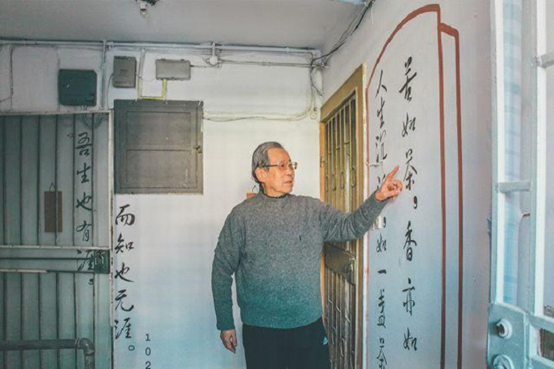 吾生也有涯
而知也无涯。
102
人生沉 如一盏茶
苦如茶。香亦如